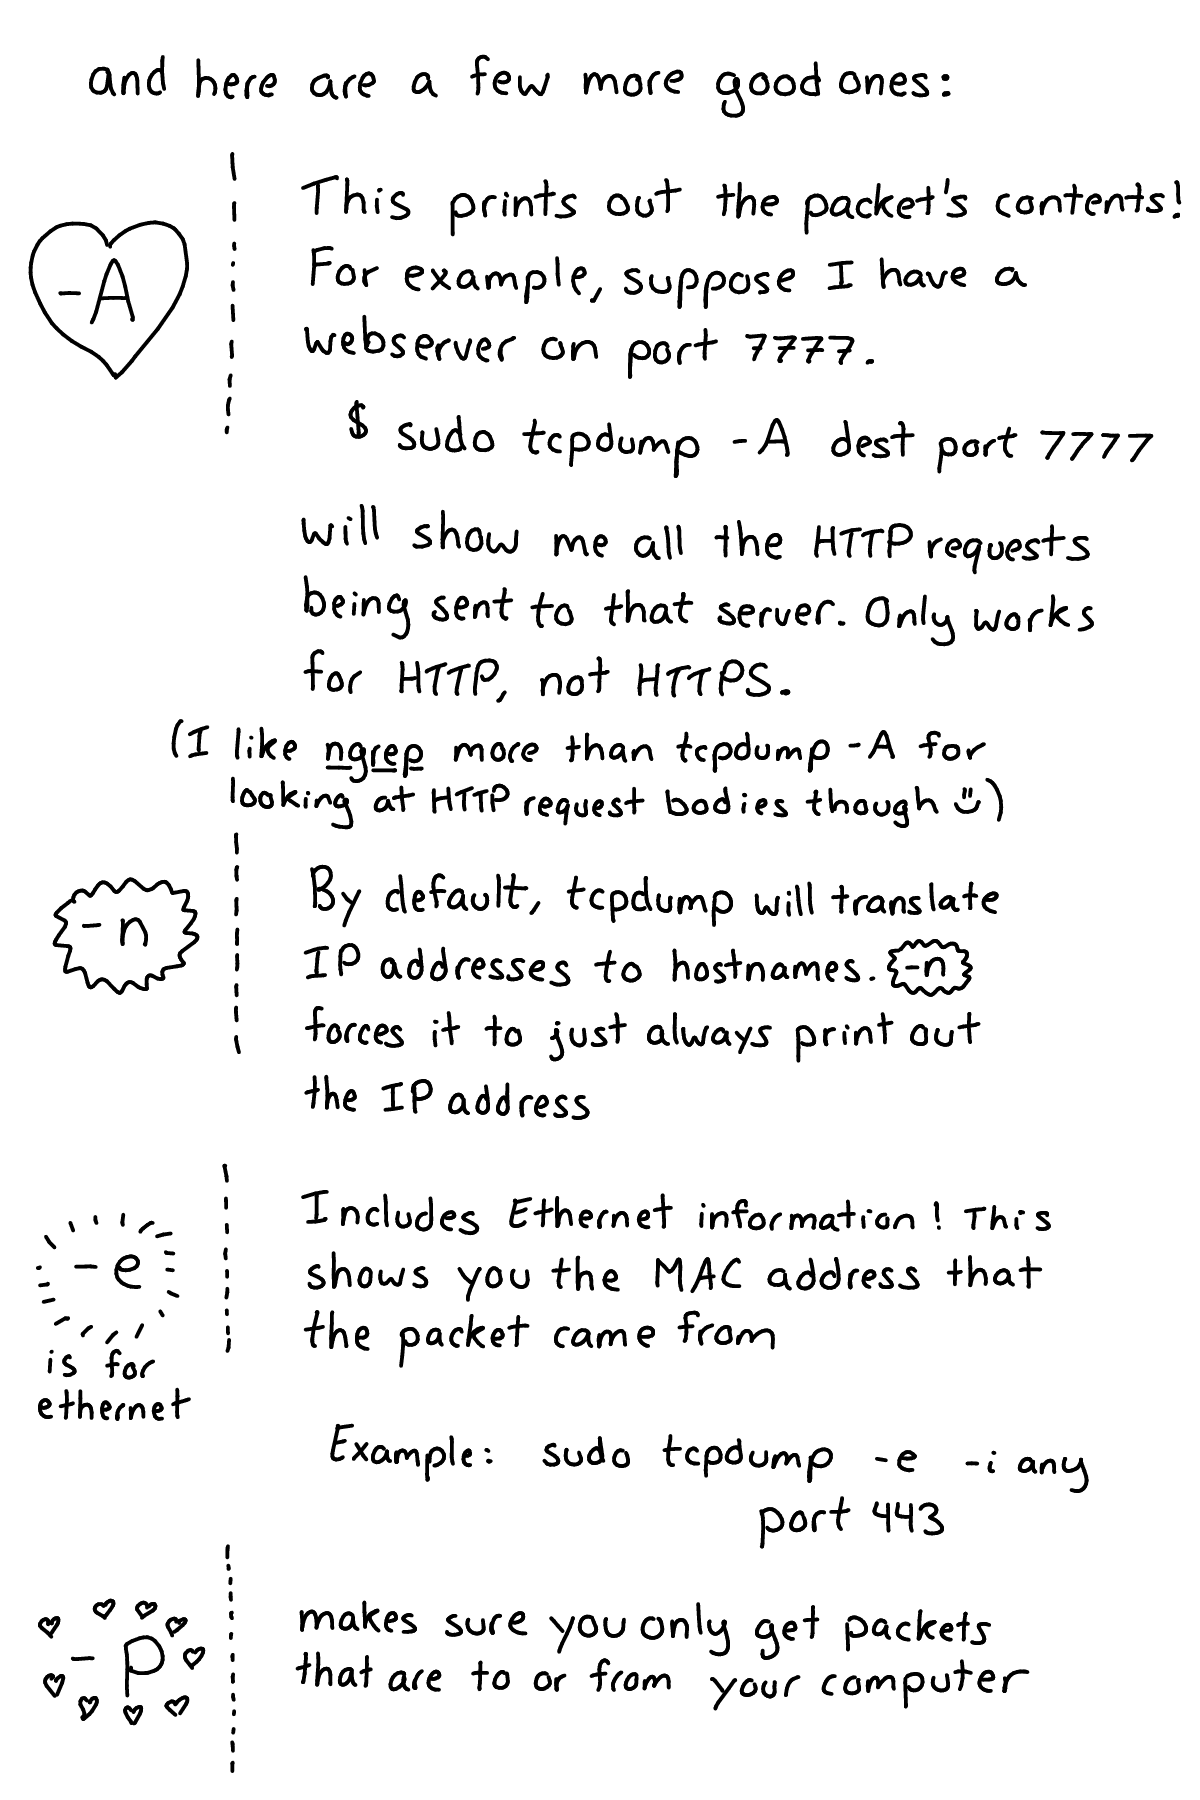 and here are a few more good ones:
-A
This prints out the packet's contents!
For example, suppose I have a
webserver on port 7777.
$ sudo tcpdump -A dest port 7777
will show me all the HTTP requests
being sent to that server. Only works
for HTTP, not HTTPS.
(I like ngrep more than tcpdump -A for
looking at HTTP request bodies though)
-n
By default, tcpdump will translate
IP addresses to hostnames. -n
forces it to just always print out
the IP address
-e
is for
ethernet
Includes Ethernet information! This
shows you the MAC address that
the packet came from
Example: sudo tcpdump -e -i any
port 443
-p
makes sure you only get packets
that are to or from your computer